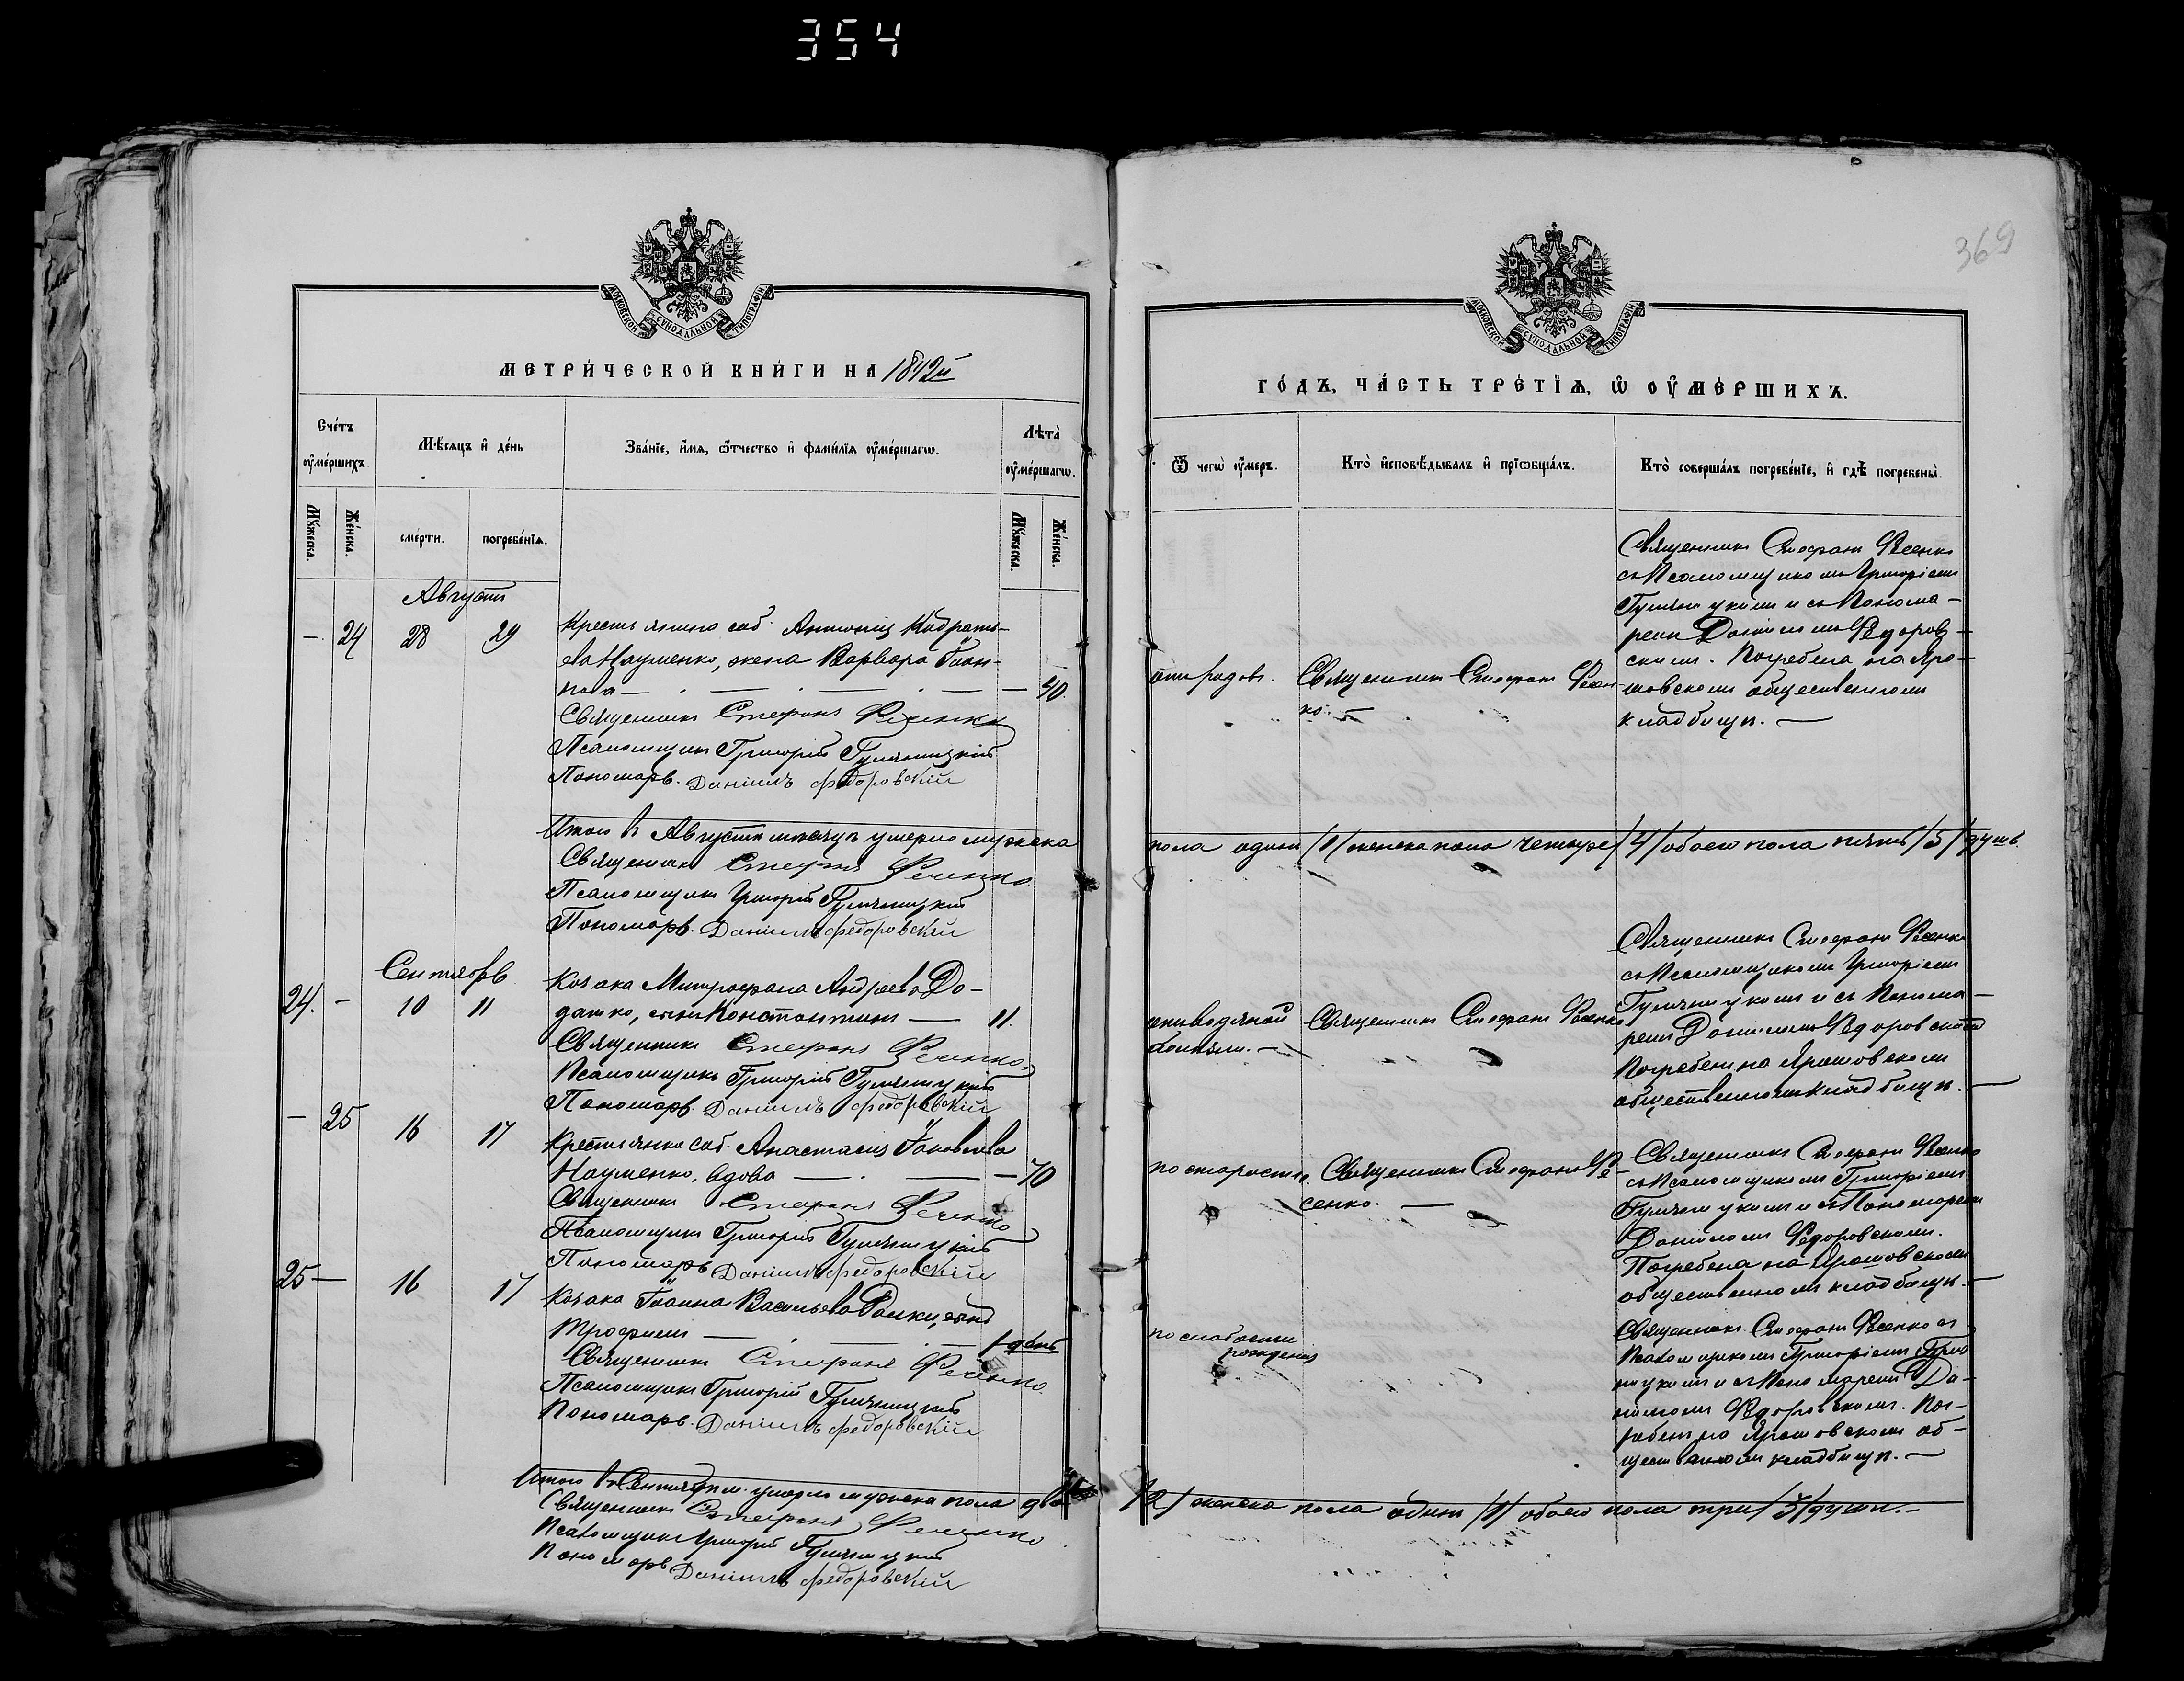 354
369
МОСКОВСКОЙ СУНОДАЛЬНОЙ ТИПОГРАФІИ
МЕТРИЧЕСКОЙ КНИГИ НА
Счетъ оумершихъ.
Мѣсяцъ и день
Званіе, имя, отчество и фамилія оумершагѡ.
Лѣта оумершагѡ.
Мужеска.
Женска.
смерти.
погребенія.
Мужеска.
Женска.
Августъ
– 24 28 29
Крестьянина соб. Антонія Кодрать-
ева Науменко, жена Варвара Іоан-
нова — — 40.
Священникъ Стефанъ Фесенко
Псаломщикъ Григорій
Пономарь Даніилъ Федоровскій
Итого въ Августѣ мѣсяцѣ умерло мужеска
Священникъ Стефанъ Фесенко
Псаломщикъ Григорій
Пономарь Даніилъ Федоровскій
Сентябрь
24. – 10 11
Козака Митрофана Андреева До-
датко, сынъ Константинъ — 11.
Священникъ Стефанъ Фесенко
Псаломщикъ Григорій
Пономарь Даніилъ Федоровскій
– 25 16 17
Крестьянка соб. Анастасія Іаковлева
Науменко, вдова — — 70
Священникъ Стефанъ Фесенко
Псаломщикъ Григорій
Пономарь Даніилъ Федоровскій
25 — 16 17
Козака Іоанна Васильева сынъ
Трофимъ — 1 день
Священникъ Стефанъ Фесенко
Псаломщикъ Григорій
Пономарь Даніилъ Федоровскій
Итого въ Сентябрѣ м. умерло мужеска пола два
Священникъ Стефанъ Фесенко
Псаломщикъ Григорій
Пономарь Даніилъ Федоровскій
МОСКОВСКОЙ СУНОДАЛЬНОЙ ТИПОГРАФІИ
ГОДЪ, ЧАСТЬ ТРЕТІЯ, Ѡ ОУМЕРШИХЪ.
Ѿ чегѡ оумеръ.
Кто исповѣдывалъ и пріѡбщалъ.
Кто совершалъ погребеніе, и гдѣ погребены.
отъ родовъ.
Священникъ Стефанъ Фесен-
ко. —
Священникъ Стефанъ Фесенко
съ Псаломщикомъ Григоріемъ
и съ Понома-
ремъ Даніиломъ Федоров-
скимъ. Погребена на
общественномъ
кладбищѣ. —
пола одинъ /1/ женска пола четыре /4/ обоего пола пять /5/ душъ
отъ водяной
болѣзни. —
Священникъ Стефанъ Фесенко
Священникъ Стефанъ Фесенко
съ Псаломщикомъ Григоріемъ
и съ Понома-
ремъ Даніиломъ Федоровскимъ
Погребенъ на
общественномъ кладбищѣ. —
по старости.
Священникъ Стефанъ Фе-
сенко. —
Священникъ Стефанъ Фесенко
съ Псаломщикомъ Григоріемъ
и съ Пономаремъ
Даніиломъ Федоровскимъ.
Погребена на
общественномъ кладбищѣ. —
по слабости
рожденія
Священникъ Стефанъ Фесенко съ
Псаломщикомъ Григоріемъ
и съ Пономаремъ Да-
ніиломъ Федоровскимъ. Пог-
ребенъ на об-
щественномъ кладбищѣ. —
/2/ женска пола одинъ /1/ обоего пола три /3/ душъ. –